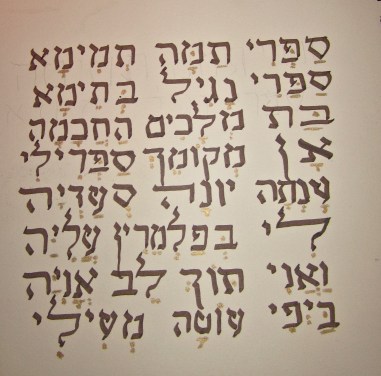 סַפְּרִי תַמָּה תְמִימָא
סַפְּרִי נָגִיל בְּתֵימָא
בַּת מְלָכִים הַחֲכָמָה
אָן מְקוֹמֵךְ סַפְּרִי לִי
עָנְתָה יוֹנָה סְעַדְיָה
לִי בְּפַלְטֵרִין עֲלִיָּה
וַאֲנִי תּוֹךְ לֵב אֳנִיָּה
בְּיֹפִי עוֹטָה מְעִילִי